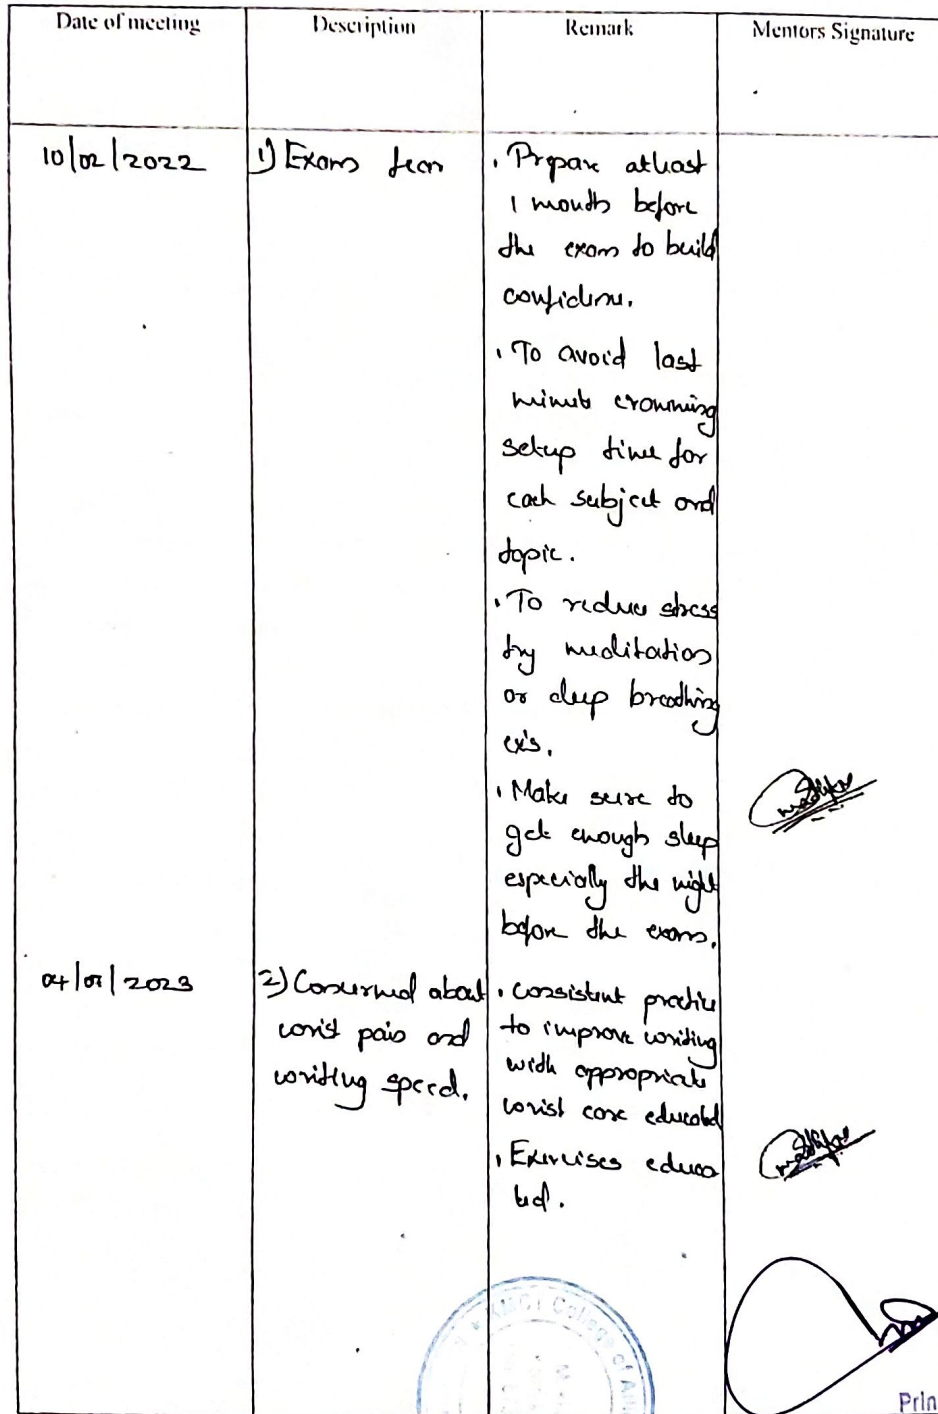 Date of meeting
Description
Remark
Mentors Signature
10/02/2022
1) Exams fear
. Prepare atleast
1 month before
the exams to build
confidence.
. To avoid last
minute cramming
setup time for
each subject and
topic.
. To reduce stress
try meditation
or deep breathing
ex's.
. Make sure to
get enough sleep
especially the night
before the exams.
04/01/2023
2) Concerned about
wrist pain and
writing speed.
. consistent practice
to improve writing
with appropriate
wrist care educated
. Exercises educa
ted.
KMCT College of All
Prin